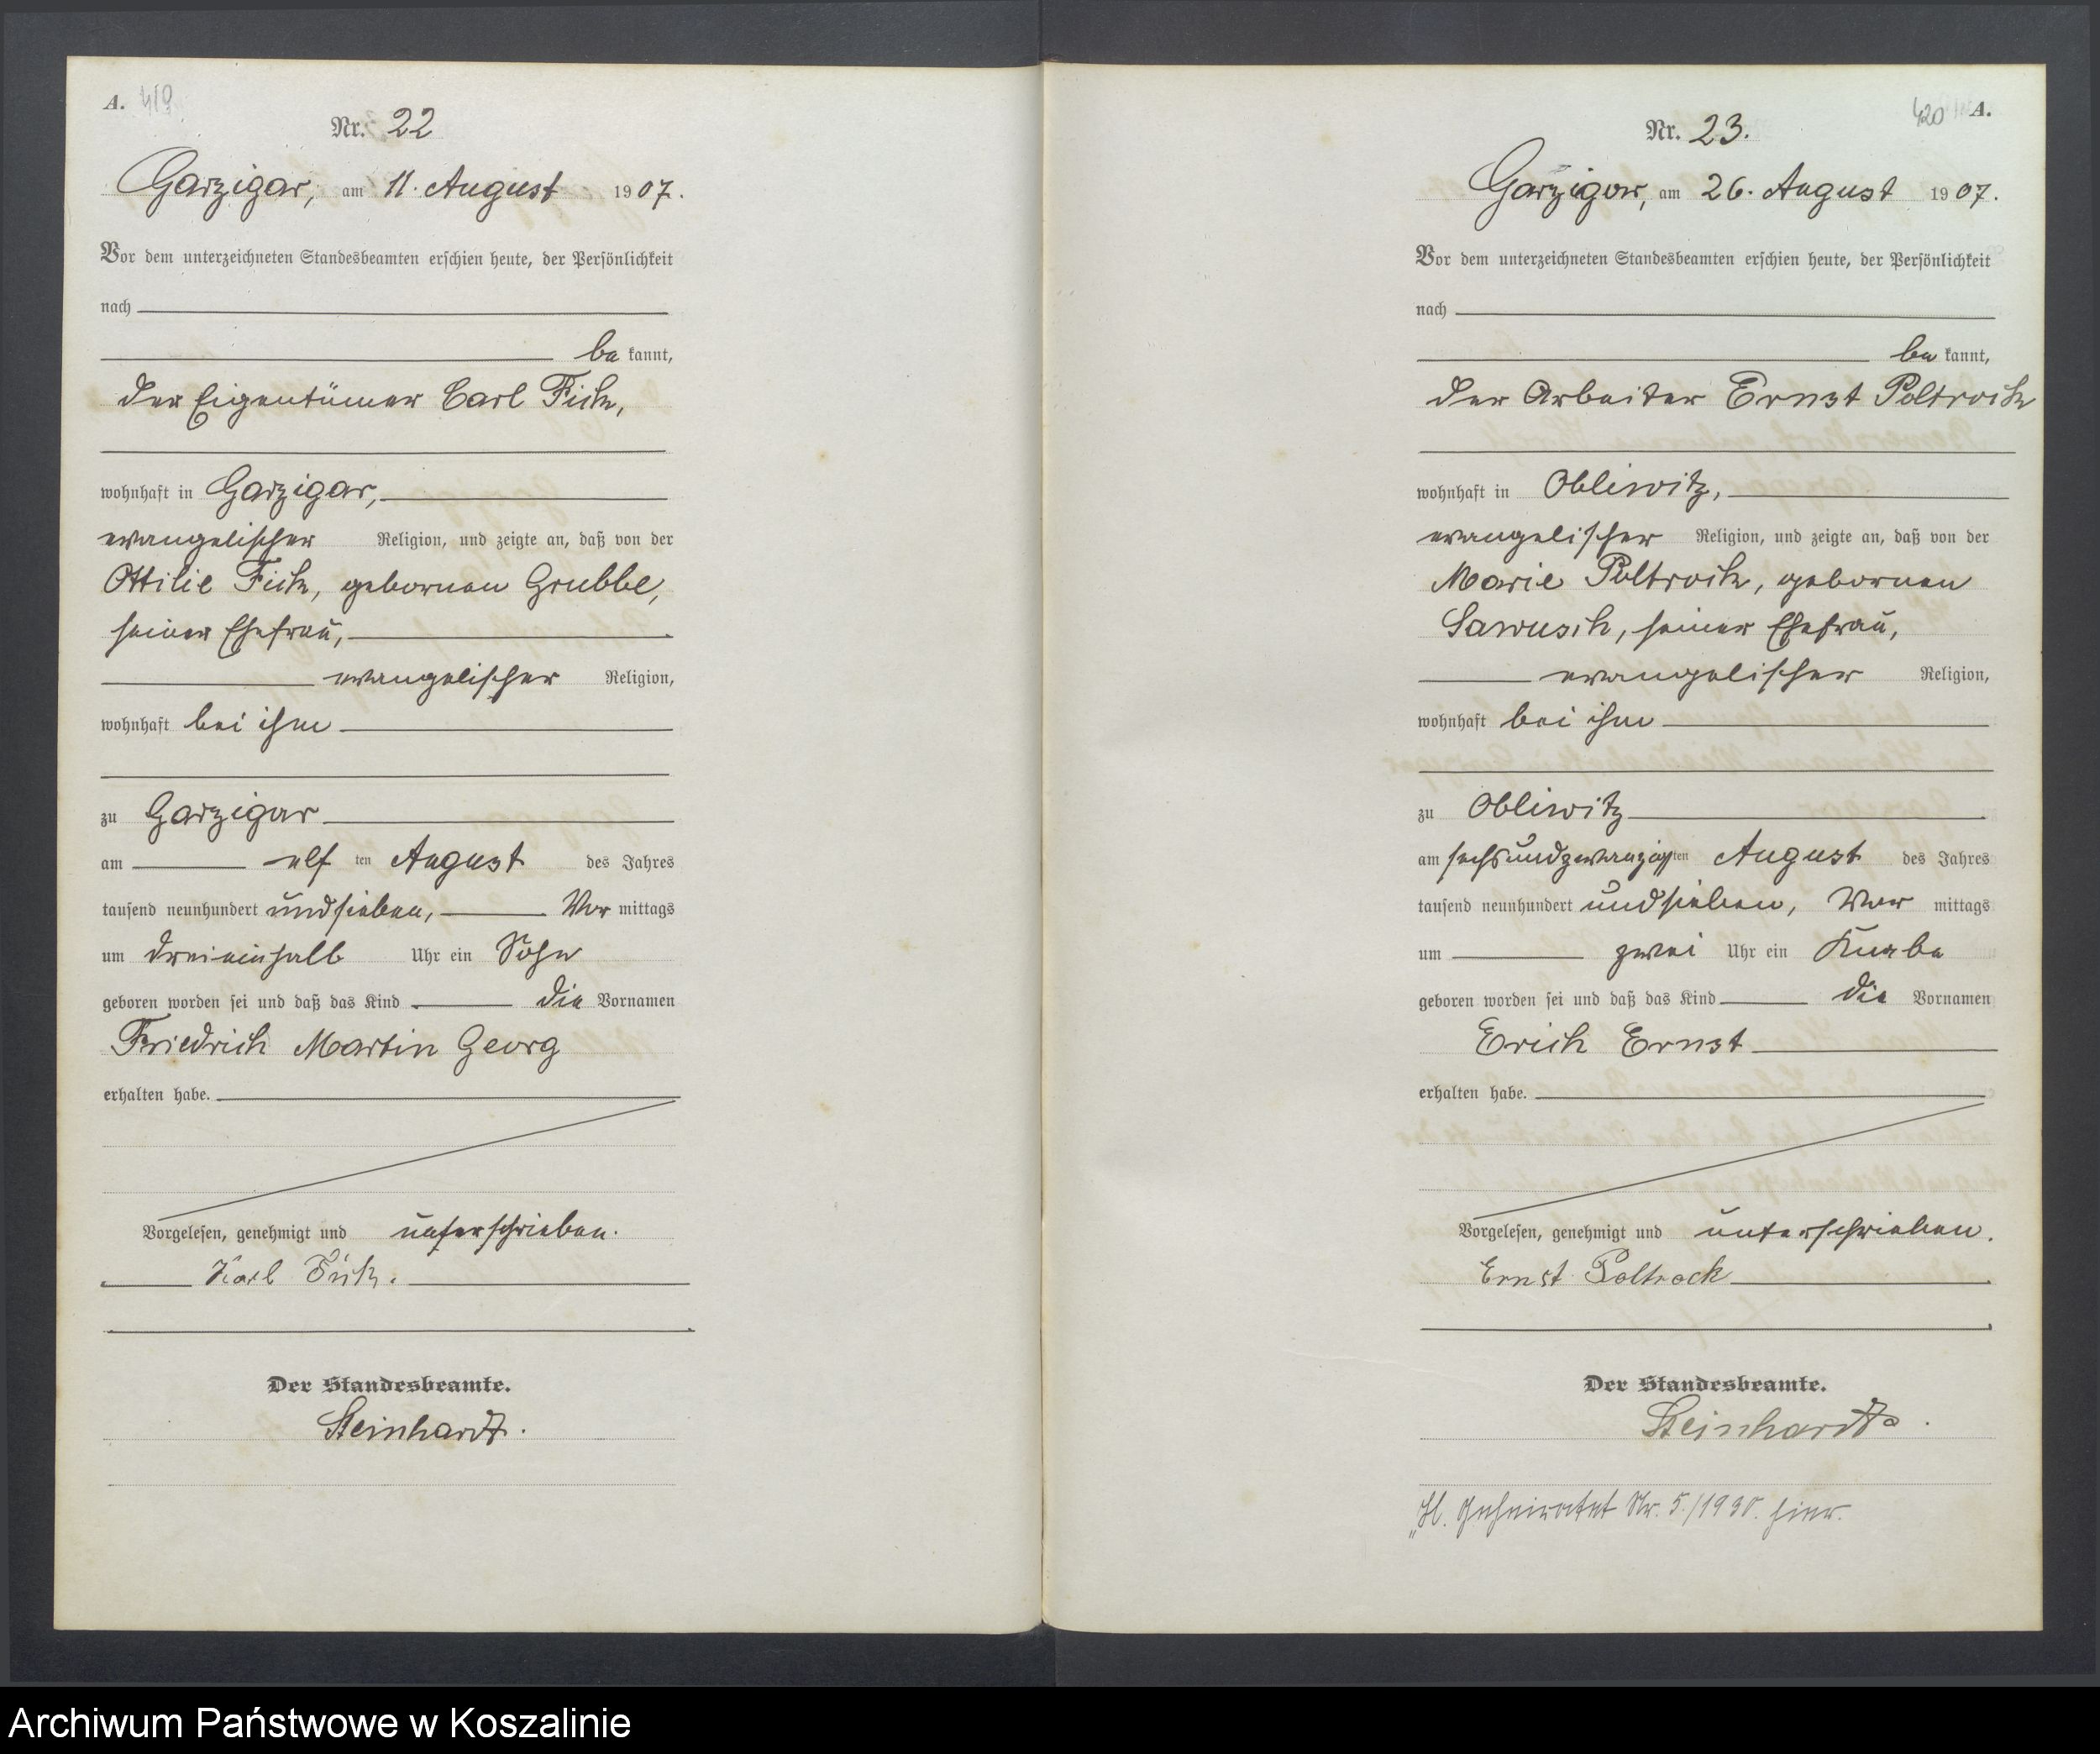 A. 419
Nr. 22
Garzigar, am 11. August 1907.
Vor dem unterzeichneten Standesbeamten erschien heute, der Persönlichkeit
nach
be kannt,
der Eigentümer Carl Fick,
wohnhaft in Garzigar,
evangelischer Religion, und zeigte an, daß von der
Ottilie Fick, gebornen Grubbe,
seiner Ehefrau,
evangelischer Religion,
wohnhaft bei ihm
zu Garzigar
am elf ten August des Jahres
tausend neunhundert und sieben, Vor mittags
um dreieinhalb Uhr ein Sohn
geboren worden sei und daß das Kind die Vornamen
Friedrich Martin Georg
erhalten habe.
Vorgelesen, genehmigt und unterschrieben.
Karl Fick.
Der Standesbeamte.
Steinhardt.
420 A.
Nr. 23.
Garzigar, am 26. August 1907.
Vor dem unterzeichneten Standesbeamten erschien heute, der Persönlichkeit
nach
be kannt,
der Arbeiter Ernst Poltrock
wohnhaft in Obliwitz,
evangelischer Religion, und zeigte an, daß von der
Marie Poltrock, gebornen
Sawusch, seiner Ehefrau,
evangelischer Religion,
wohnhaft bei ihm
zu Obliwitz
am sechsundzwanzigsten August des Jahres
tausend neunhundert und sieben, Vor mittags
um zwei Uhr ein Knabe
geboren worden sei und daß das Kind die Vornamen
Erich Ernst
erhalten habe.
Vorgelesen, genehmigt und unterschrieben.
Ernst Poltrock
Der Standesbeamte.
Steinhardt.
geheiratet Nr. 5./1930. hier.
Archiwum Państwowe w Koszalinie